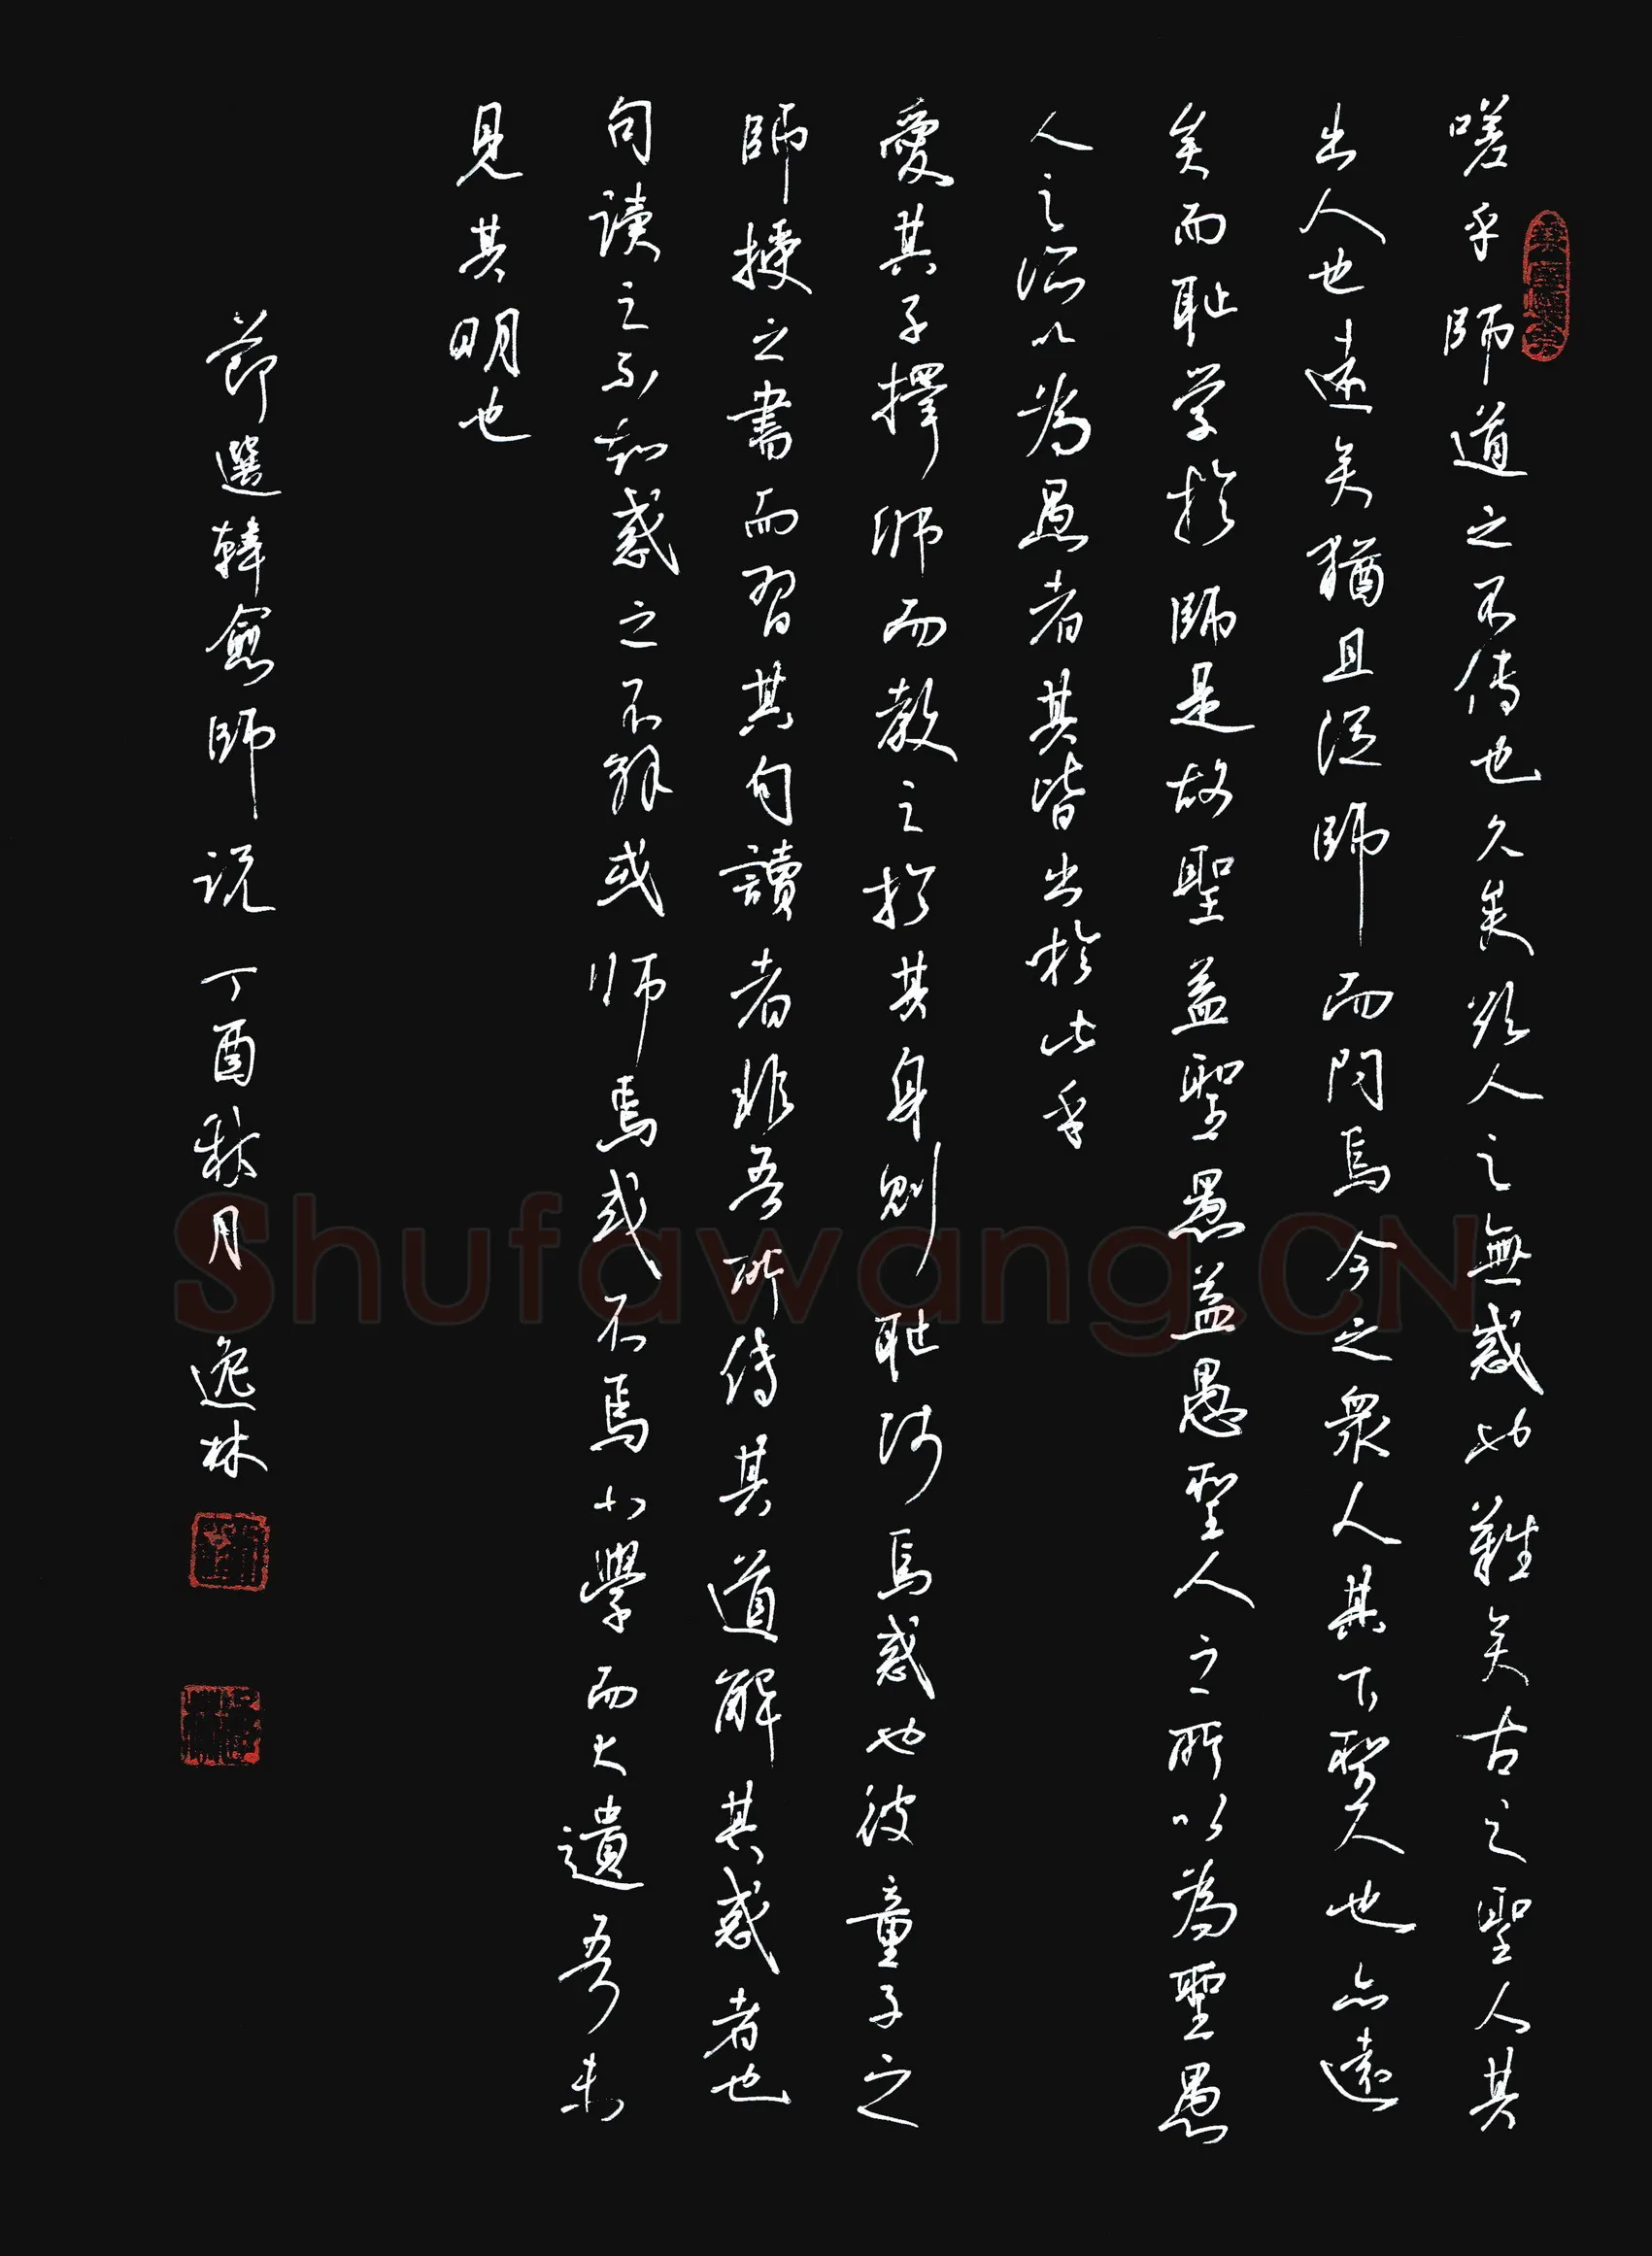 嗟乎師道之不传也久矣欲人之無惑也難矣古之聖人其
出人也遠矣猶且從師而問焉今之衆人其下聖人也亦遠
矣而耻学於師是故聖益聖愚益愚聖人之所以為聖愚
人之所以為愚者其皆出於此乎
愛其子擇师而教之於其身則耻师焉惑也彼童子之
師授之書而習其句讀者非吾所傳其道解其惑者也
句读之不知惑之不解或师焉或不焉小學而大遺吾未
見其明也
節選韓愈師说丁酉秋月逸林
Shufawang.CN